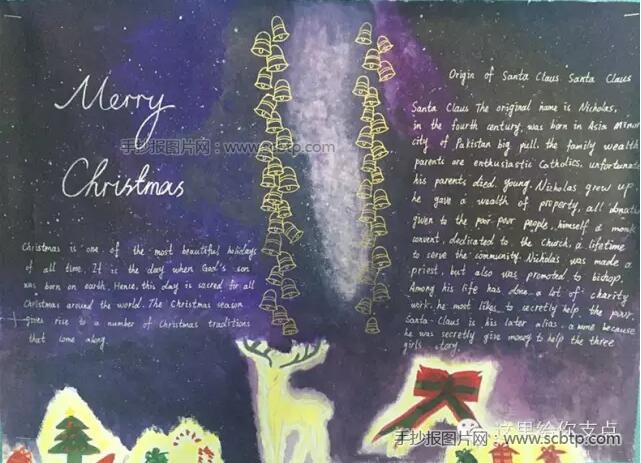 Merry
Christmas
Christmas is one of the most beautiful holidays
of all time. It is the day when God's son
was born on earth. Hence, this day is sacred for all
Christmas around the world. The Christmas season
gives rise to a number of Christmas traditions
that come along.
手抄报图片网:www.scbtp.com
Origin of Santa Claus Santa Claus
Santa Claus The original name is Nicholas,
in the fourth century, was born in Asia Minor
city of Pakistan big pull. the family wealth
parents are enthusiastic Catholics, unfortunate
his parents died young. Nicholas grew up
he gave a wealth of property, all donate
given to the poor poor people, himself a monk
convent, dedicated to the Church, a lifetime
to serve the community. Nicholas was made a
priest, but also was promoted to bishop.
Among his life has done a lot of charity
work, he most likes to secretly help the poor.
Santa Claus is his later alias, a name because
he was secretly give money to help the three
girls story.
这里给你支点
手抄报图片网:www.scbtp.com